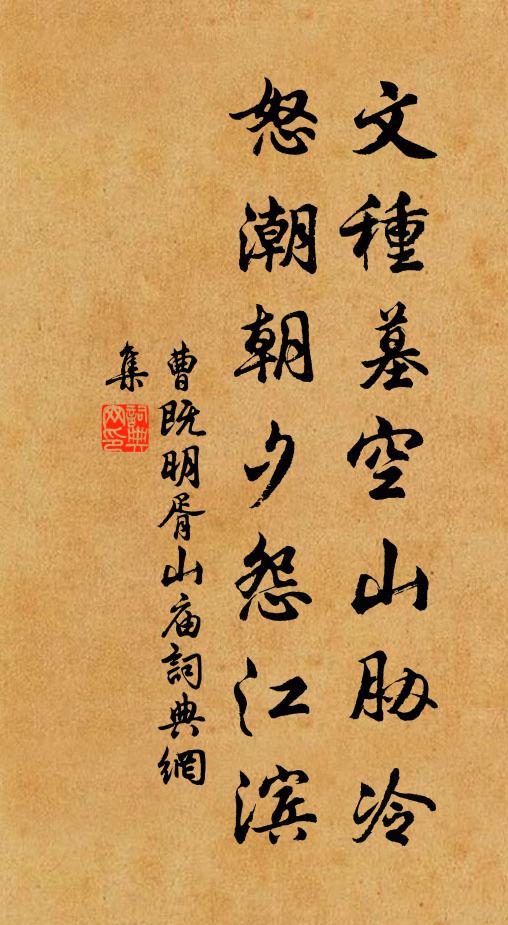 文種墓空山胁冷
怒潮朝夕怨江滨
曹既明胥山庙詞典網
集
詞典